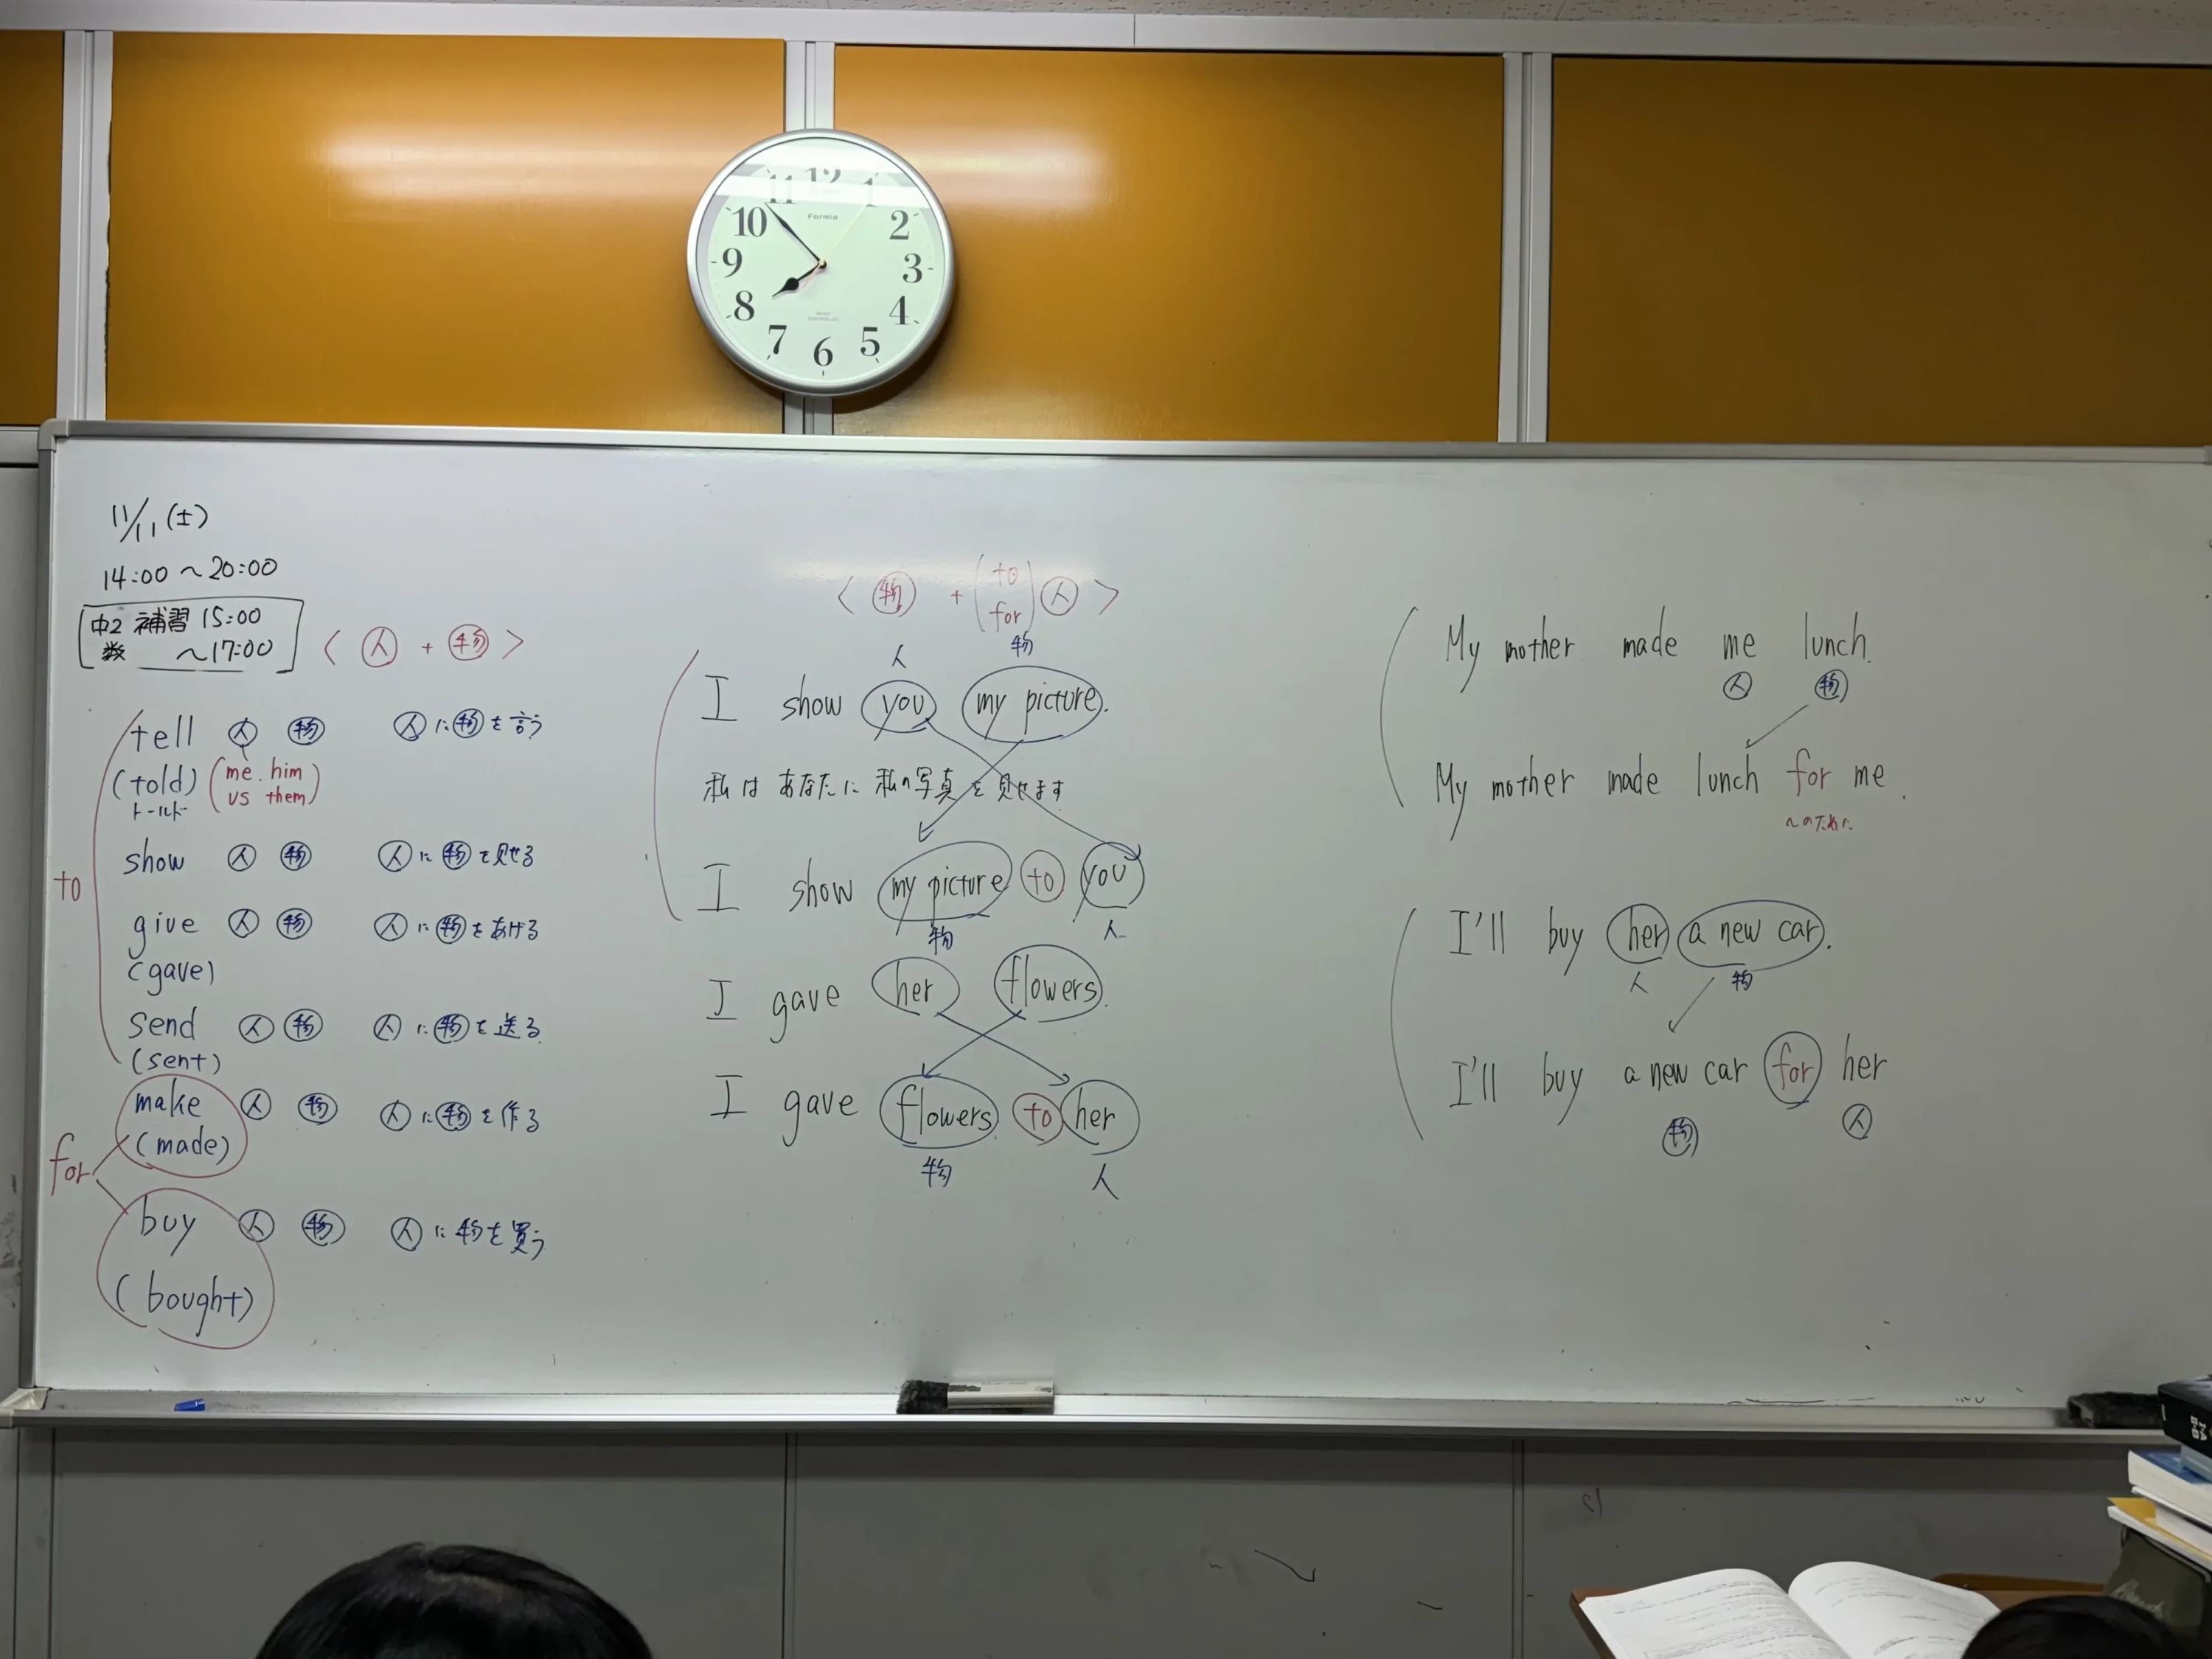 12
11
1
10
2
9
3
8
4
7
5
6
Formia
11/11 (土)
14:00 〜 20:00
中2 補習 15:00
数 〜17:00
< 人 + 物 >
tell 人 物 人に物を言う
(told) (me. him
us them)
トールド
show 人 物 人に物を見せる
to
give 人 物 人に物をあげる
(gave)
send 人 物 人に物を送る
(sent)
make 人 物 人に物を作る
(made)
for
buy 人 物 人に物を買う
(bought)
< 物 + (to for) 人 >
人 物
I show you my picture.
私は あなたに 私の写真を見せます
I show my picture to you
物 人
I gave her flowers.
I gave flowers to her
物 人
My mother made me lunch.
人 物
My mother made lunch for me.
〜のために
I'll buy her a new car.
人 物
I'll buy a new car for her
物 人